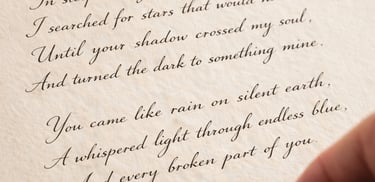 I searched for stars that would
Until your shadow crossed my soul,
And turned the dark to something mine.
You came like rain on silent earth,
A whispered light through endless blue,
And every broken part of you.